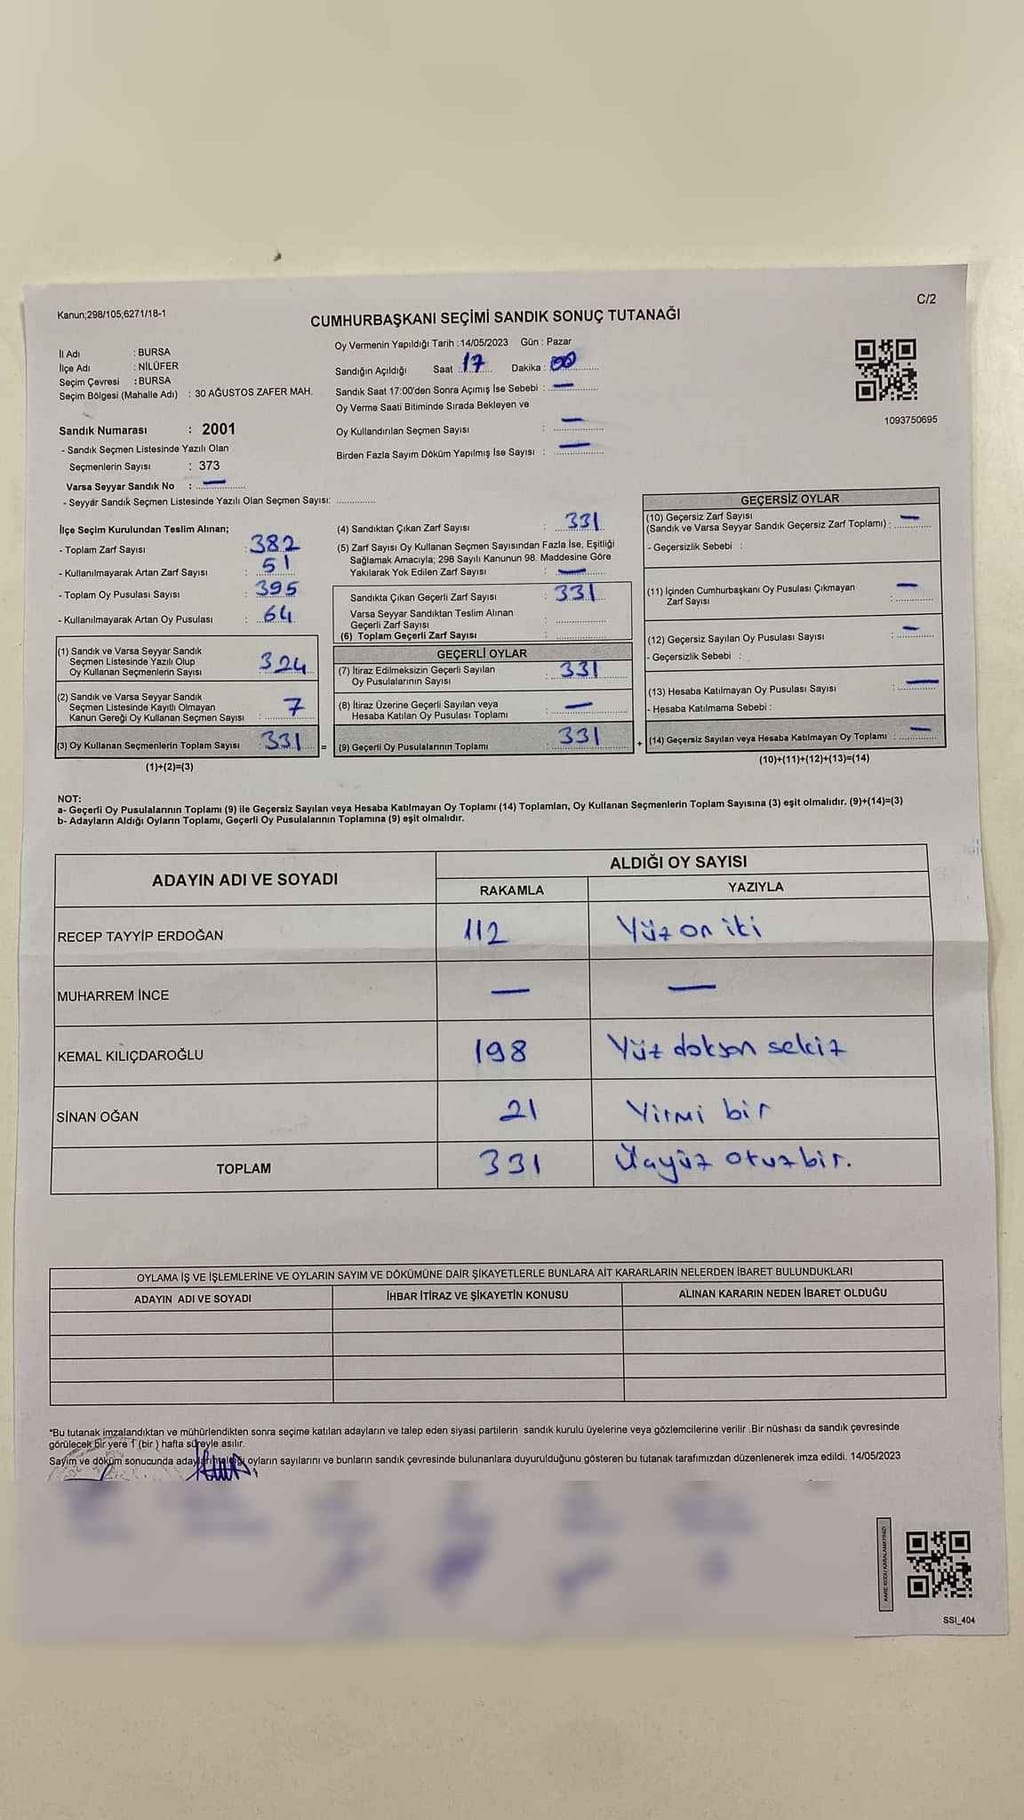 Kanun;298/105;6271/18-1
C/2
CUMHURBAŞKANI SEÇİMİ SANDIK SONUÇ TUTANAĞI
İl Adı : BURSA
İlçe Adı : NİLÜFER
Seçim Çevresi : BURSA
Seçim Bölgesi (Mahalle Adı) : 30 AĞUSTOS ZAFER MAH.
Sandık Numarası : 2001
- Sandık Seçmen Listesinde Yazılı Olan
Seçmenlerin Sayısı : 373
Varsa Seyyar Sandık No : —
- Seyyar Sandık Seçmen Listesinde Yazılı Olan Seçmen Sayısı: ..............
Oy Vermenin Yapıldığı Tarih :14/05/2023 Gün : Pazar
Sandığın Açıldığı Saat : 17 Dakika : 00
Sandık Saat 17:00'den Sonra Açımış İse Sebebi : —
Oy Verme Saati Bitiminde Sırada Bekleyen ve
Oy Kullandırılan Seçmen Sayısı : —
Birden Fazla Sayım Döküm Yapılmış İse Sayısı : —
1093750695
İlçe Seçim Kurulundan Teslim Alınan;
- Toplam Zarf Sayısı : 382
- Kullanılmayarak Artan Zarf Sayısı : 51
- Toplam Oy Pusulası Sayısı : 395
- Kullanılmayarak Artan Oy Pusulası : 64
(1) Sandık ve Varsa Seyyar Sandık
Seçmen Listesinde Yazılı Olup
Oy Kullanan Seçmenlerin Sayısı 324
(2) Sandık ve Varsa Seyyar Sandık
Seçmen Listesinde Kayıtlı Olmayan
Kanun Gereği Oy Kullanan Seçmen Sayısı : 7
(3) Oy Kullanan Seçmenlerin Toplam Sayısı : 331 =
(1)+(2)=(3)
(4) Sandıktan Çıkan Zarf Sayısı : 331
(5) Zarf Sayısı Oy Kullanan Seçmen Sayısından Fazla İse, Eşitliği
Sağlamak Amacıyla; 298 Sayılı Kanunun 98. Maddesine Göre
Yakılarak Yok Edilen Zarf Sayısı : —
Sandıkta Çıkan Geçerli Zarf Sayısı : 331
Varsa Seyyar Sandıktan Teslim Alınan
Geçerli Zarf Sayısı :
(6) Toplam Geçerli Zarf Sayısı :
GEÇERLİ OYLAR
(7) İtiraz Edilmeksizin Geçerli Sayılan
Oy Pusulalarının Sayısı : 331
(8) İtiraz Üzerine Geçerli Sayılan veya
Hesaba Katılan Oy Pusulası Toplamı : —
(9) Geçerli Oy Pusulalarının Toplamı : 331 +
GEÇERSİZ OYLAR
(10) Geçersiz Zarf Sayısı
(Sandık ve Varsa Seyyar Sandık Geçersiz Zarf Toplamı) : —
- Geçersizlik Sebebi :
(11) İçinden Cumhurbaşkanı Oy Pusulası Çıkmayan
Zarf Sayısı : —
(12) Geçersiz Sayılan Oy Pusulası Sayısı : —
- Geçersizlik Sebebi :
(13) Hesaba Katılmayan Oy Pusulası Sayısı : —
- Hesaba Katılmama Sebebi :
(14) Geçersiz Sayılan veya Hesaba Katılmayan Oy Toplamı : —
(10)+(11)+(12)+(13)=(14)
NOT:
a- Geçerli Oy Pusulalarının Toplamı (9) ile Geçersiz Sayılan veya Hesaba Katılmayan Oy Toplamı (14) Toplamları, Oy Kullanan Seçmenlerin Toplam Sayısına (3) eşit olmalıdır. (9)+(14)=(3)
b- Adayların Aldığı Oyların Toplamı, Geçerli Oy Pusulalarının Toplamına (9) eşit olmalıdır.
ADAYIN ADI VE SOYADI
ALDIĞI OY SAYISI
RAKAMLA YAZIYLA
RECEP TAYYİP ERDOĞAN 112 Yüz on iki
MUHARREM İNCE — —
KEMAL KILIÇDAROĞLU 198 Yüz doksan sekiz
SİNAN OĞAN 21 Yirmi bir
TOPLAM 331 Üçyüz otuzbir.
OYLAMA İŞ VE İŞLEMLERİNE VE OYLARIN SAYIM VE DÖKÜMÜNE DAİR ŞİKAYETLERLE BUNLARA AİT KARARLARIN NELERDEN İBARET BULUNDUKLARI
ADAYIN ADI VE SOYADI İHBAR İTİRAZ VE ŞİKAYETİN KONUSU ALINAN KARARIN NEDEN İBARET OLDUĞU
"Bu tutanak imzalandıktan ve mühürlendikten sonra seçime katılan adayların ve talep eden siyasi partilerin sandık kurulu üyelerine veya gözlemcilerine verilir .Bir nüshası da sandık çevresinde
görülecek bir yere 1 (bir ) hafta süreyle asılır.
Sayım ve döküm sonucunda oyların sayılarını ve bunların sandık çevresinde bulunanlara duyurulduğunu gösteren bu tutanak tarafımızdan düzenlenerek imza edildi. 14/05/2023
KARE KODU KARALAMAYINIZ!
SSI_404